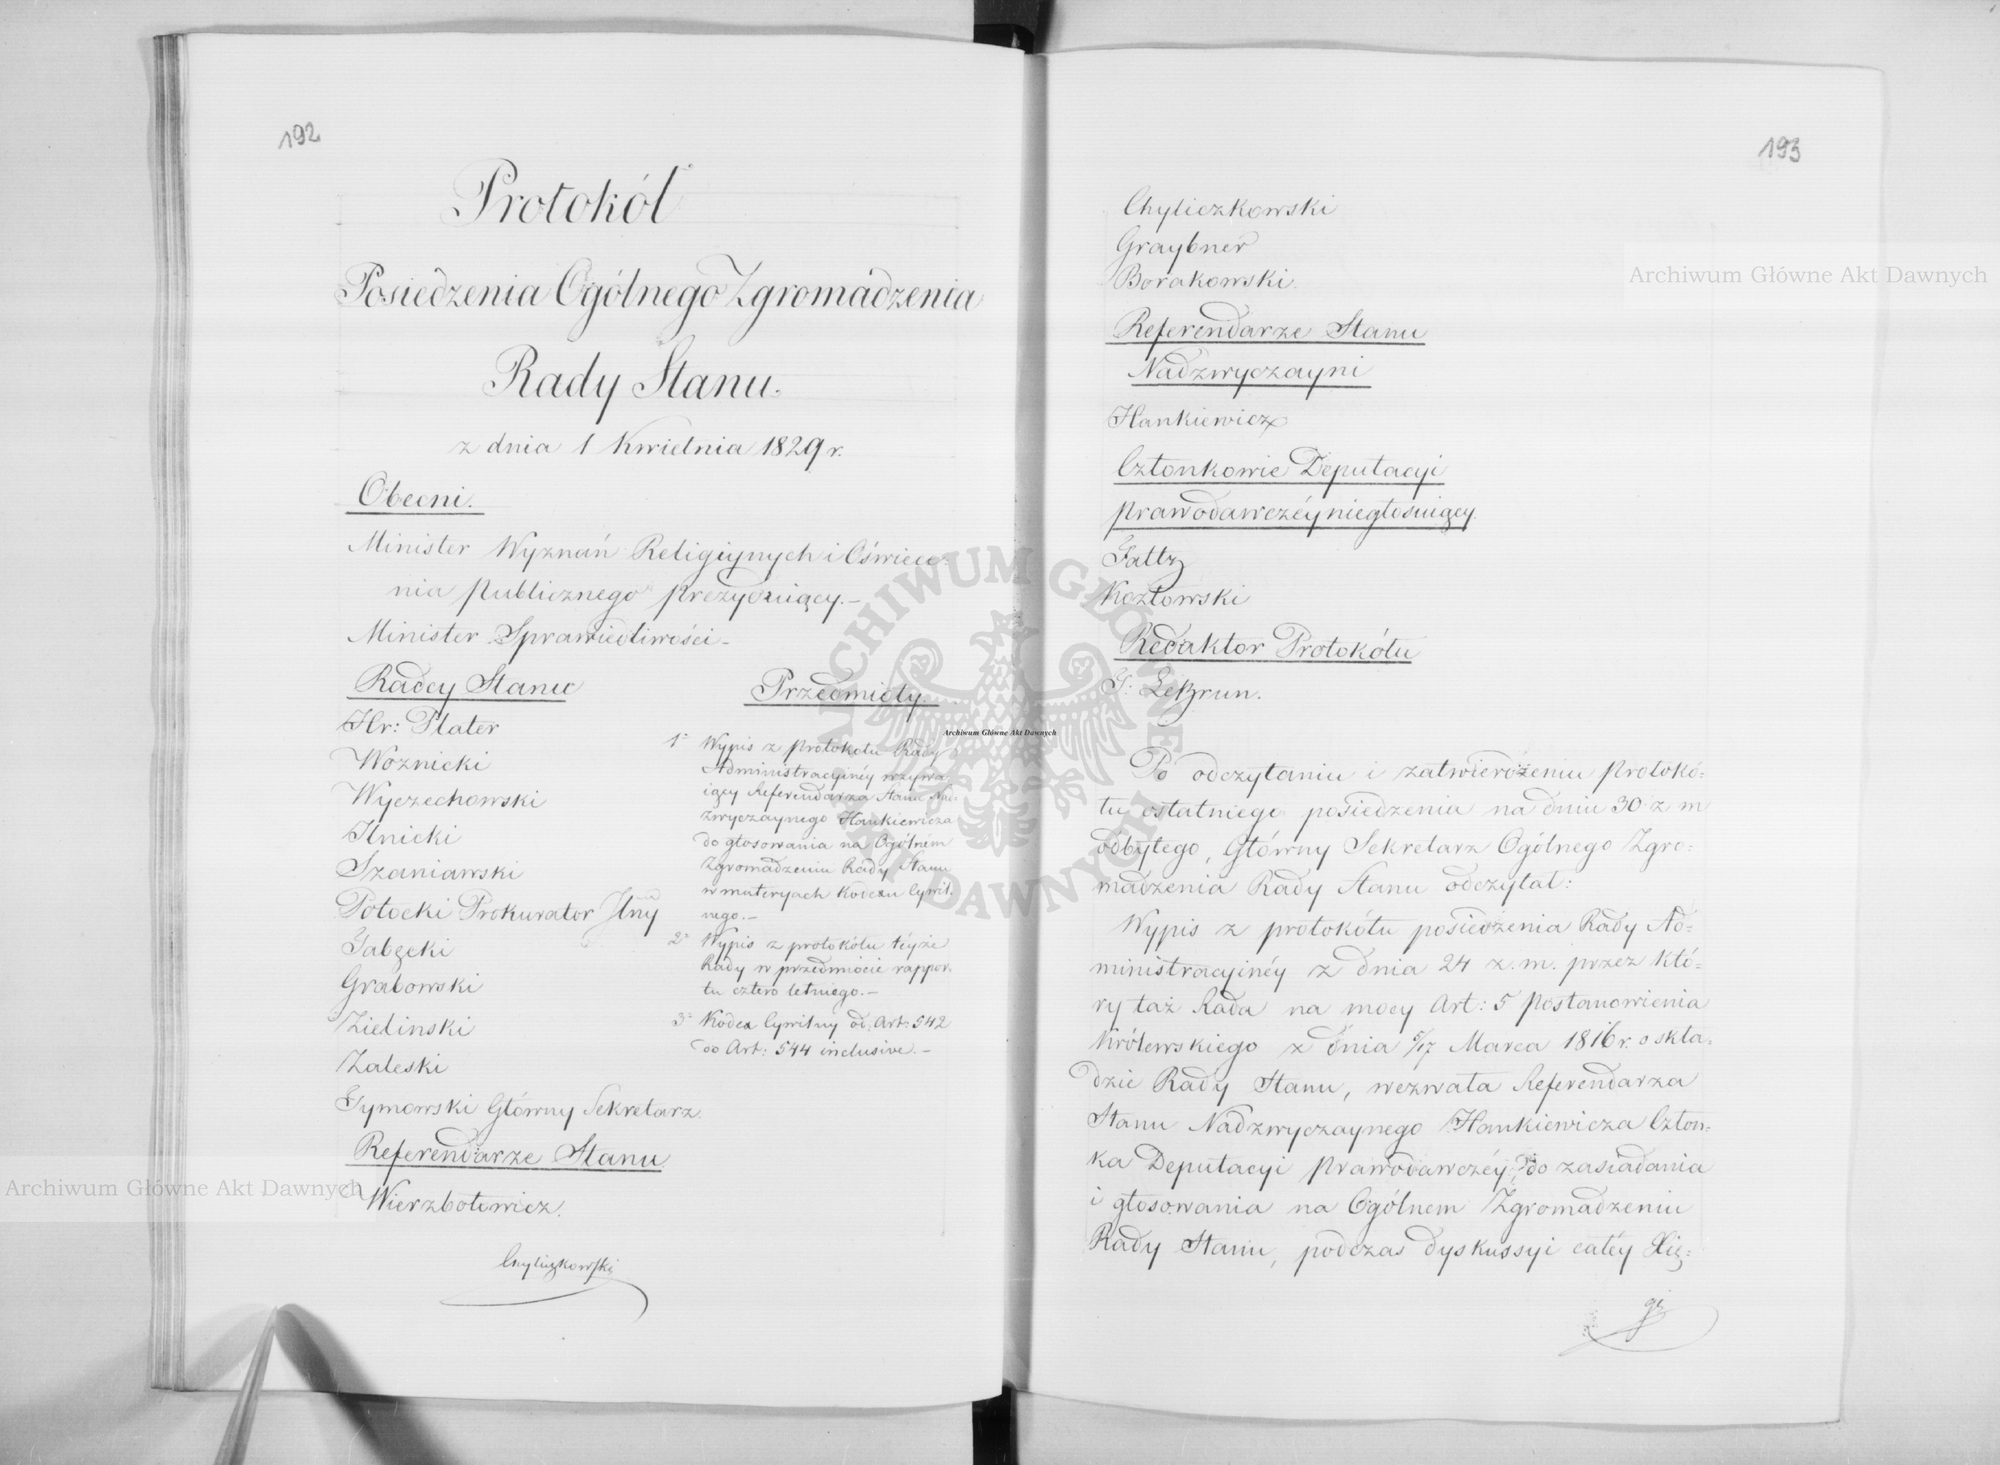 192
Protokół
Posiedzenia Ogólnego Zgromadzenia
Rady Stanu.
z dnia 1 Kwietnia 1829 r.
Obecni.
Minister Wyznań Religijnych i Oświece-
nia Publicznego Prezyduiący.-
Minister Sprawiedliwości -
Radcy Stanu
Hr: Plater
Woznicki
Wyczechowski
Ilnicki
Szaniawski
Potocki Prokurator Jlny
Tabęcki
Grabowski
Zielinski
Zaleski
Tymowski Główny Sekretarz
Referendarze Stanu
Wierzbołowicz.
Przedmioty.
1° Wypis z protokółu Rady
Administracyinéy wzywa-
iący Referendarza Stanu Nad-
zwyczaynego Hankiewicza
do głosowania na Ogólném
Zgromadzeniu Rady Stanu
w materyach Kodexu Cywil-
nego.-
2° Wypis z protokółu téyże
Rady w przedmiocie rappor-
tu cztero letniego.-
3° Kodex Cywilny od Art: 542
do Art: 544 inclusive.-
Chyliczkowski
193
Chyliczkowski
Graybner
Borakowski.
Referendarze Stanu
Nadzwyczayni
Hankiewicz
Członkowie Deputacyi
Prawodawczéy niegłosuiący.
Faltz
Kozłowski
Redaktor Protokółu
J: LeBrun.
Po odczytaniu i zatwierdzeniu protokó-
łu ostatniego posiedzenia na dniu 30 z m
odbytego, Główny Sekretarz Ogólnego Zgro-
madzenia Rady Stanu odczytał:
Wypis z protokółu posiedzenia Rady Ad-
ministracyinéy z dnia 24 z. m. przez któ-
ry taż Rada na mocy Art: 5 Postanowienia
Królewskiego z dnia 5/17 Marca 1816 r. o skła-
dzie Rady Stanu, wezwała Referendarza
Stanu Nadzwyczaynego Hankiewicza Człon-
ka Deputacyi Prawodawczéy, do zasiadania
i głosowania na Ogólnem Zgromadzeniu
Rady Stanu, podczas dyskussyi całéy Xię-
gi
Archiwum Główne Akt Dawnych
Archiwum Główne Akt Dawnych
Archiwum Główne Akt Dawnych
ARCHIWUM GŁÓWNE AKT DAWNYCH